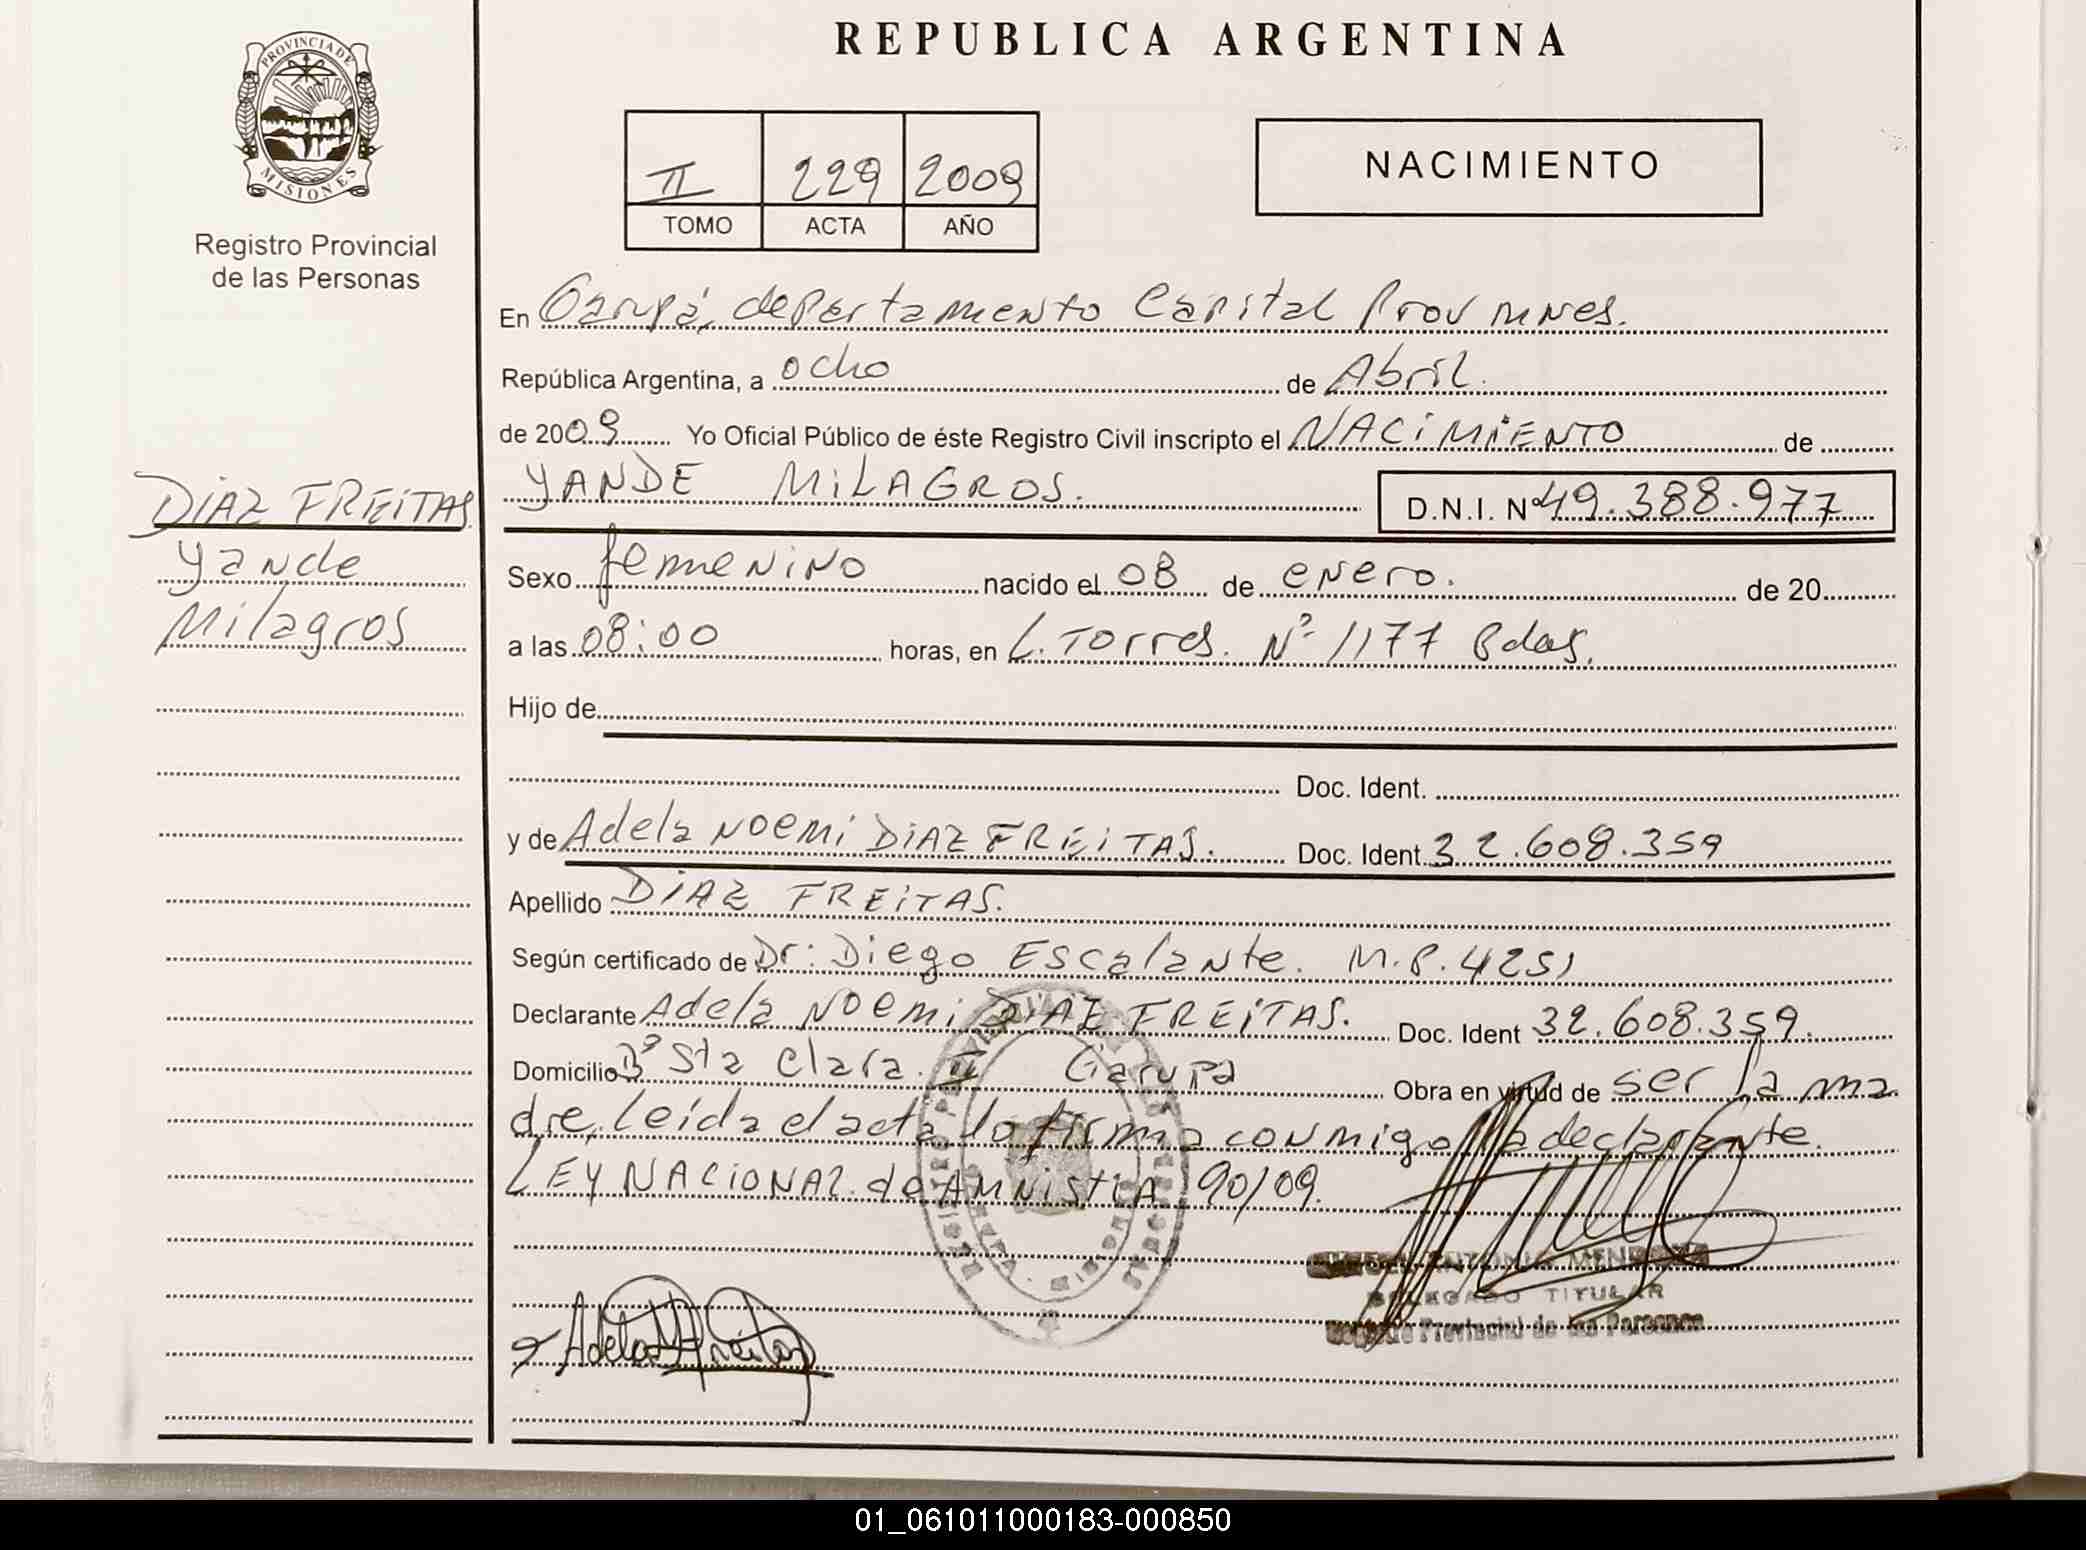 REPUBLICA ARGENTINA
PROVINCIA DE MISIONES
Registro Provincial
de las Personas
II 229 2009
TOMO ACTA AÑO
NACIMIENTO
En Garupá, departamento Capital Prov Mnes.
República Argentina, a ocho de Abril.
de 2009 Yo Oficial Público de éste Registro Civil inscripto el NACIMIENTO de
YANDE MILAGROS. D.N.I. Nº 49.388.977
DIAZ FREITAS
Yande
Milagros
Sexo femenino nacido el 08 de enero. de 20
a las 08:00 horas, en L. Torres. Nº 1177 Pdas.
Hijo de
Doc. Ident.
y de Adela Noemi DIAZ FREITAS. Doc. Ident. 32.608.359
Apellido DIAZ FREITAS.
Según certificado de Dr: Diego Escalante. M.P. 4251
Declarante Adela Noemi DIAZ FREITAS. Doc. Ident 32.608.359.
Domicilio Bº Sta Clara. II Garupa Obra en virtud de ser la ma
dre, leída el acta la firma conmigo la declarante.
LEY NACIONAL de AMNISTIA 90/09.
ANTONIO
DELEGADO TITULAR
Registro Provincial de las Personas
Adela Freitas
01_061011000183-000850